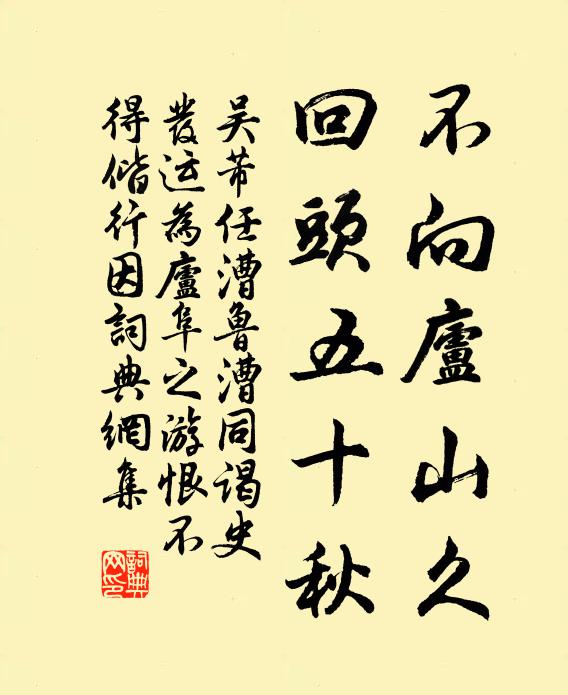 不向廬山久
回頭五十秋
吴芾任漕魯漕同谒史
發运為廬阜之游恨不
得偕行因詞典網集
詞典网印